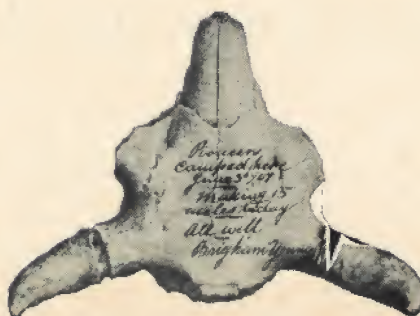 Pioneers
Camped here
June 3ᵈ 1847
Making 15
miles today
All well
Brigham Young